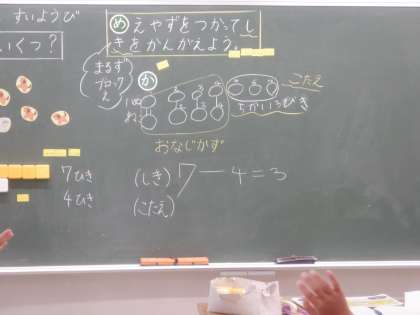 すいようび
いくつ?
め えやずをつかってし
きをかんがえよう。
まるず
ブロック
え
か
いぬ
ねこ
こたえ
ちがい3びき
おなじかず
7ひき
4ひき
(しき) 7-4=3
(こたえ)